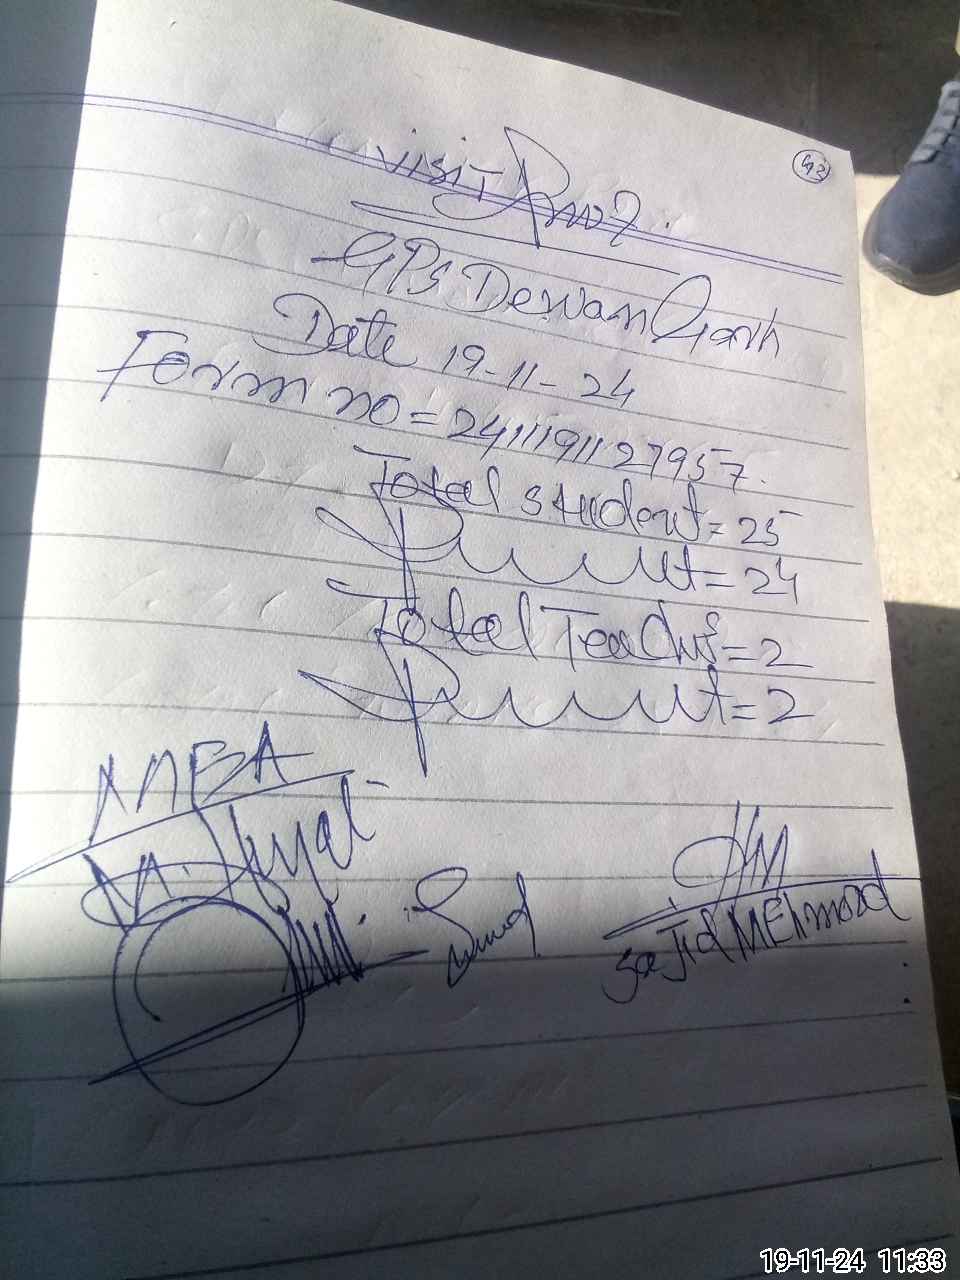 42
visit Proof
GPS Dewan Garh
Date 19-11-24
Form no = 2411191127957.
Total student = 25
Present = 24
Total Teachers = 2
Present = 2
MEA
HM
Sajid MEhmood
19-11-24 11:33